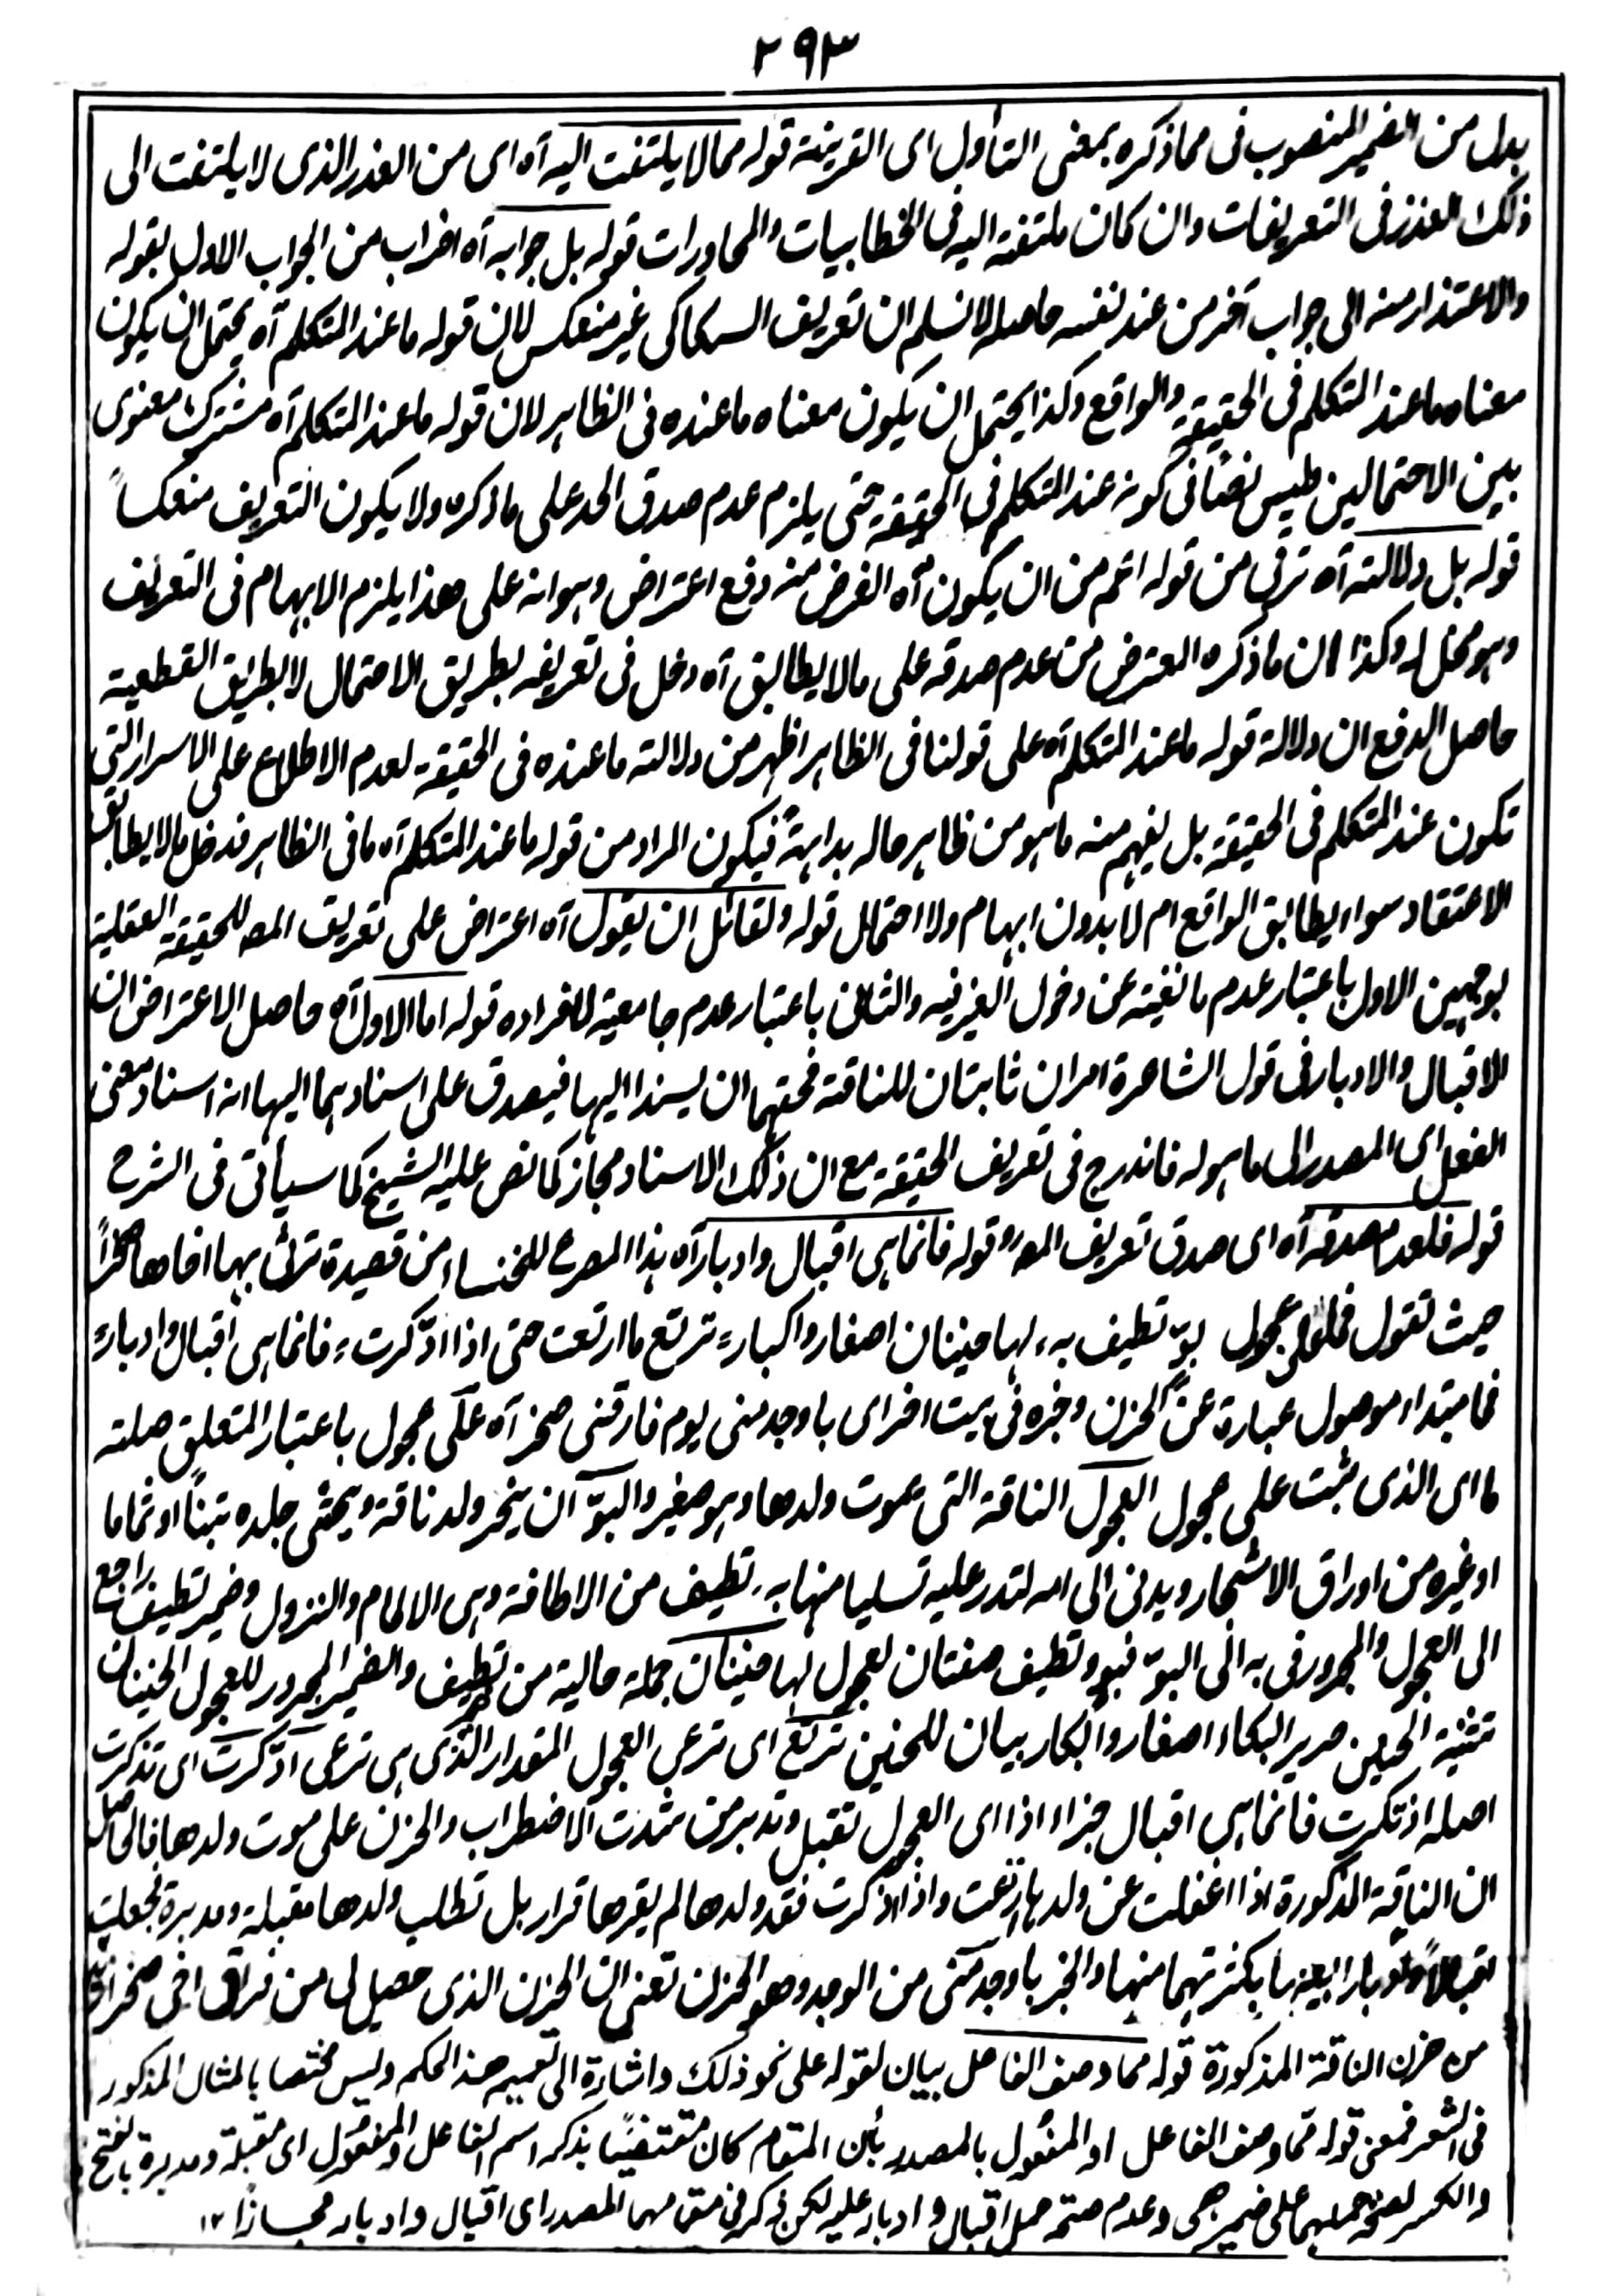 ٢٩٣
بدل من الضمير المنصوب فى مما ذكره بمعنى التأول اى القرينة قوله مما لا يلتفت اليه آه اى من العذر الذى لا يلتفت الى
ذلك العذر فى التعريفات وان كان ملتفتة اليه فى الخطابيات والمحاورات قوله بل جوابه آه اضراب من الجواب الاول بقوله
والاعتذار منه الى جواب آخر من عند نفسه حاصله لا نسلم ان تعريف السكاكى غير منعكس لان قوله ما عند المتكلم آه يحتمل ان يكون
معناه ما عند المتكلم فى الحقيقة والواقع وكذا يحتمل ان يكون معناه ما عنده فى الظاهر لان قوله ما عند المتكلم آه مشترك معنوى
بين الاحتمالين فليس نصًا فى كونه عند المتكلم فى الحقيقة حتى يلزم عدم صدق الحد على ما ذكره ولا يكون التعريف منعكساً
قوله بل دلالته آه ترقى من قوله اتم من ان يكون آه الغرض منه دفع اعتراض وهو انه على هذا يلزم الابهام فى التعريف
وهو مخل له وكذا ان ما ذكره المعترض من عدم صدقه على ما لا يطابق آه دخل فى تعريفه بطريق الاحتمال لا بطريق القطعية
حاصل الدفع ان دلالة قوله ما عند المتكلم آه على قولنا فى الظاهر اظهر من دلالته ما عنده فى الحقيقة لعدم الاطلاع على الاسرار التى
تكون عند المتكلم فى الحقيقة بل يفهم منه ما هو من ظاهر حاله بداهةً فيكون المراد من قوله ما عند المتكلم آه ما فى الظاهر فدخل ما لا يطابق
الاعتقاد سواء يطابق الواقع ام لا بدون ابهام ولا احتمال قوله ولقائل ان يقول آه اعتراض على تعريف المصـ للحقيقة العقلية
بوجهين الاول باعتبار عدم مانعيته عن دخول الغير فيه والثانى باعتبار عدم جامعيته لافراده قوله اما الاول آه حاصل الاعتراض ان
الاقبال والادبار فى قول الشاعرة امران ثابتان للناقة فحقهما ان يسندا اليها فيصدق على اسنادهما اليها انه اسناد معنى
الفعل اى المصدر الى ما هو له فاندرج فى تعريف الحقيقة مع ان ذلك الاسناد مجاز كما نص عليه الشيخ كما سيأتى فى الشرح
قوله فلعدم صدقه آه اى صدق تعريف المصـ وقوله فانما هى اقبال وادبار آه هذا المصرع للخنساء من قصيدة ترثى بها اخاها صخراً
حيث تقول فما عجول بوّ تطيف به، لها حنينان اصغار واكبار؛ ترتع ما ارتعت حتى اذا ادّكرت؛ فانما هى اقبال وادبار؛
فما مبتداء موصول عبارة عن الحزن وخبره فى بيت اخر اى باوجد منى يوم فارقنى صخر آه على عجول باعتبار المتعلق صلته
ما اى الذى ثبت على عجول العجول الناقة التى يموت ولدها وهو صغير والبوّ ان ينحر ولد ناقة ويحشى جلده تبناً او ثماما
او غيره من اوراق الاشجار ويدنى الى امه لتدر عليه تسليا منها به، تطيف من الاطافة وهى الالمام والنزول وضمير تطيف راجع
الى العجول والمجرور فى به الى البوّ فبوّ وتطيف صفتان لعجول لها حنينان جملة حالية من تطيف والضمير المجرور للعجول الحنينان
تثنية الحنين صرير البكاء اصغار واكبار بيان للحنين ترتع اى ترعى العجول المقدار الذى هى ترعى ادّكرت اى تذكرت
اصله اذتكرت فانما هى اقبال جزاء اذا اى العجول تقبل وتدبر من شدت الاضطراب والحزن على موت ولدها فالحاصل
ان الناقة المذكورة اذا اغفلت عن ولدها رتعت واذا اذكرت فقد ولدها لم يقرها قرار بل تطلب ولدها مقبلة ومدبرة فجعلت
اقبالاً وادبارا بعينها بكثرتهما منها والخبر باوجد منى من الوجد وهو الحزن تعنى ان الحزن الذى حصل لى من فراق اخى صخر اشد
من حزن الناقة المذكورة قوله مما وصف الفاعل بيان لقوله على نحو ذلك واشارة الى تعميم هذا الحكم وليس مختصا بالمثال المذكور
فى الشعر فمعنى قوله مما وصف الفاعل او المفعول بالمصدر بأن المقام كان مقتضيًا بذكر اسم الفاعل والمفعول اى مقبلة ومدبرة بالفتح
والكسر لصحة حملهما على ضمير هى وعدم صحة حمل اقبال وادبار عليه لكن ذكر فى مقامهما المصدر اى اقبال وادبار مجازا ١٢